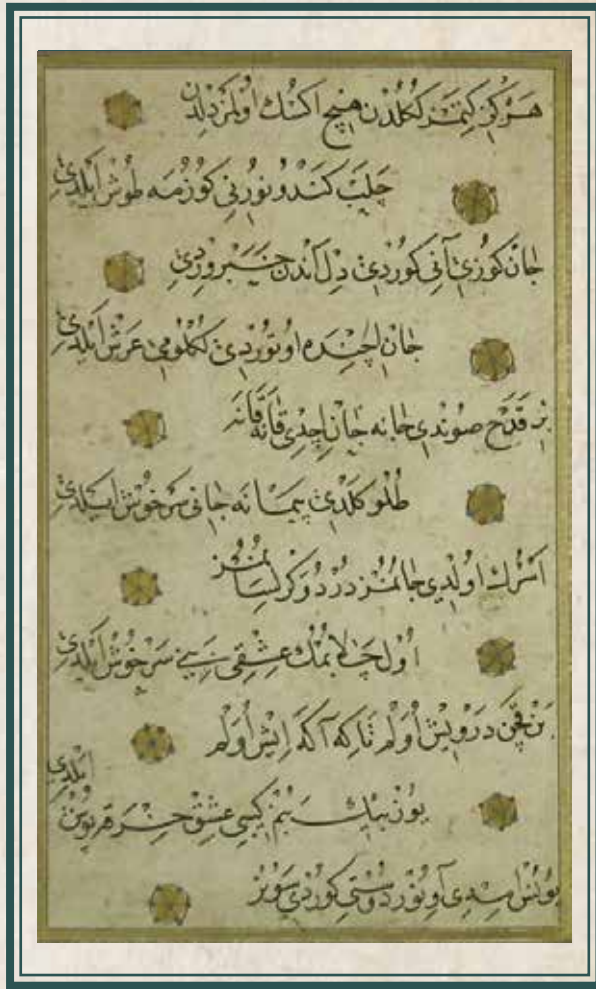 هرگز كتمز ككلدن هیچ اكسك اولمز دلدن
چلب كندو نورنی كوزمه طوش ایلدی
جان كوزی آنی كوردی دل آندن خبر وردی
جان اچنده اوتوردی ككلومی عرش ایلدی
بر قدح صوندی جانه جان اچدی قانه قانه
طلو كلدی پیمانه جانی سرخوش ایلدی
اسرك اولدی جانمز در دوكر لسانمز
اول چلابمك عشقی بنی سرخوش ایلدی
بن قچن درویش اولم تا كه آكه ایش اولم
یوز بیك بنم كبی عشق خرقه پوش ایلدی
یونس امدی آونور دوستی كوردی سونر